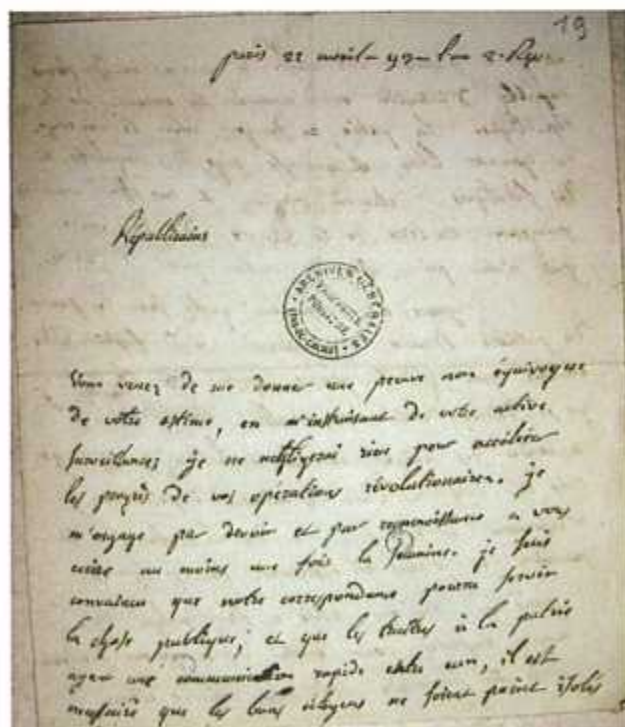 19
paris 22 avril 93 l'an 2. Rep.
Républicains
ARCHIVES GENERALES
Vous venez de me donner une preuve non équivoque
de votre estime, en m'instruisant de votre active
surveillance; je ne négligerai rien pour accélérer
les progrès de vos opérations révolutionnaires. je
m'engage par devoir et par reconnoissance a vous
ecrire au moins une fois la semaine. je suis
convaincu que notre correspondance pourra servir
la chose publique; et que les traitres à la patrie
ayant une communication rapide entre eux, il est
necessaire que les bons citoyens ne soient point isolés